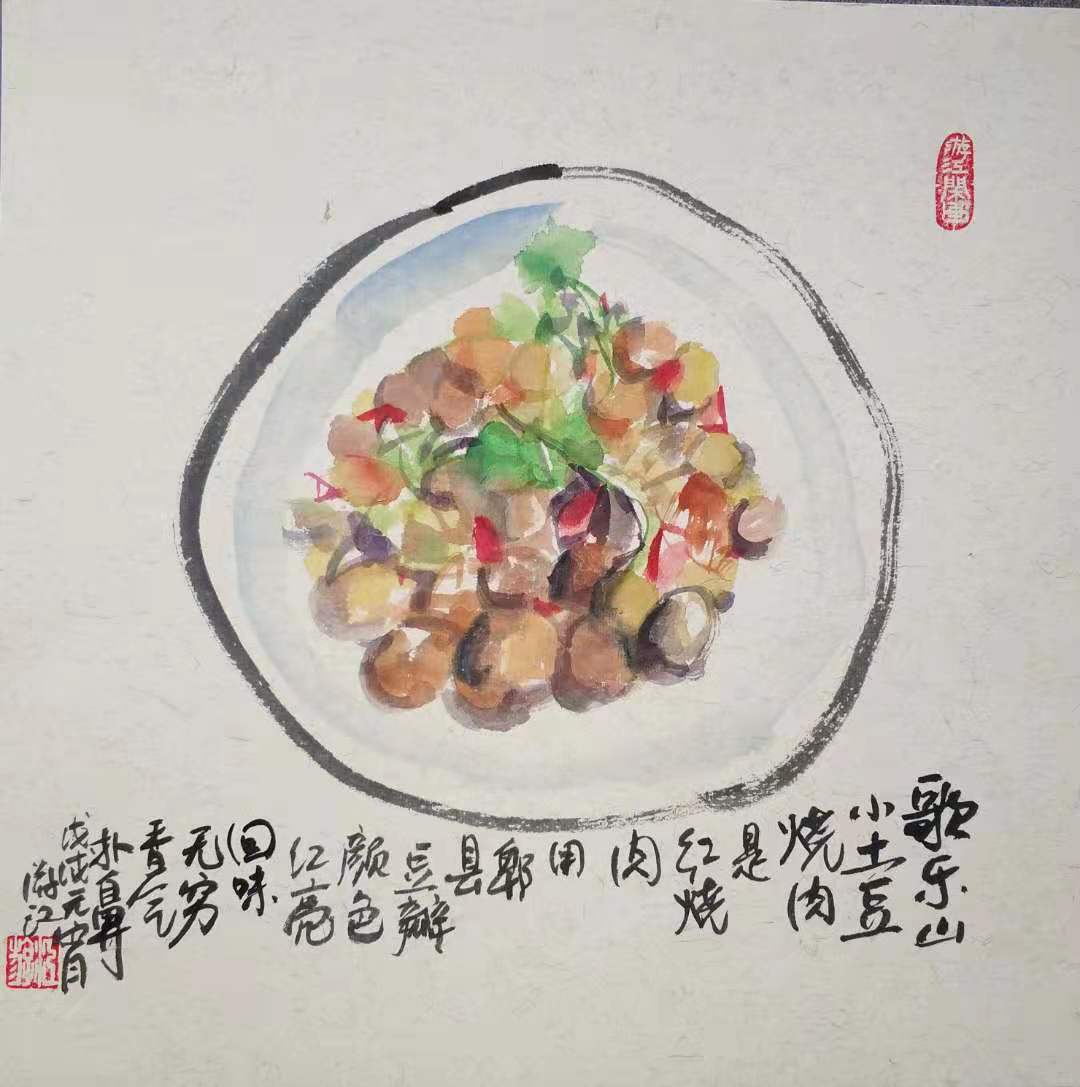 歌乐山
小土豆
烧肉
是
红烧
肉
用
郫
县
豆瓣
颜色
红亮
回味
无穷
香气
扑鼻
戊戌元宵
游江
游江闲画
游江